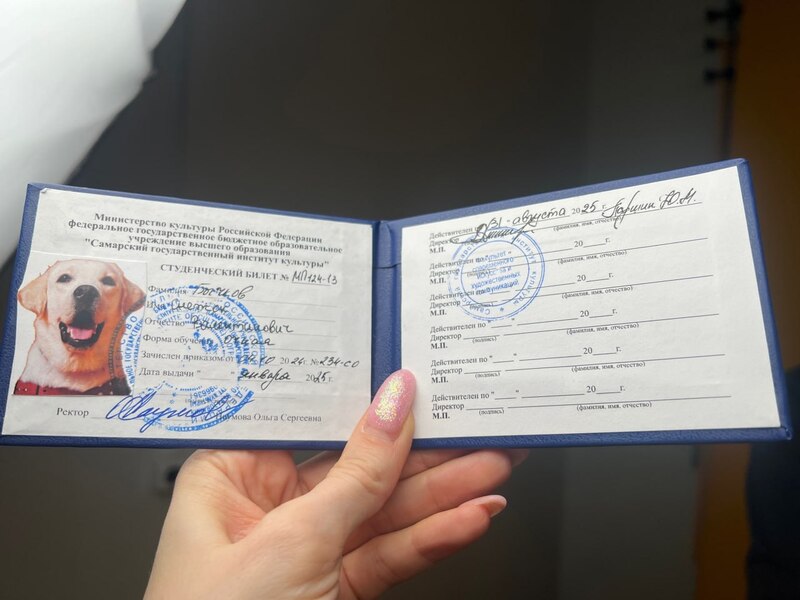 Министерство культуры Российской Федерации
федеральное государственное бюджетное образовательное
учреждение высшего образования
"Самарский государственный институт культуры"
СТУДЕНЧЕСКИЙ БИЛЕТ № МП124-13
Фамилия
Имя
Отчество Валентинович
Форма обучения Очная
Зачислен приказом от 20 24 г. № 234-СО
Дата выдачи " " января 2025 г.
Ректор Наумова Ольга Сергеевна
Действителен 31 - августа 2025 г.
Директор Ю.М.
М.П. (фамилия, имя, отчество)
Действителен по 20 г.
Директор
М.П. (фамилия, имя, отчество)
Действителен по 20 г.
Директор
М.П. (фамилия, имя, отчество)
Действителен по " " 20 г.
Директор
М.П. (подпись) (фамилия, имя, отчество)
Действителен по " " 20 г.
Директор
М.П. (подпись) (фамилия, имя, отчество)
Действителен по " " 20 г.
Директор
М.П. (подпись) (фамилия, имя, отчество)